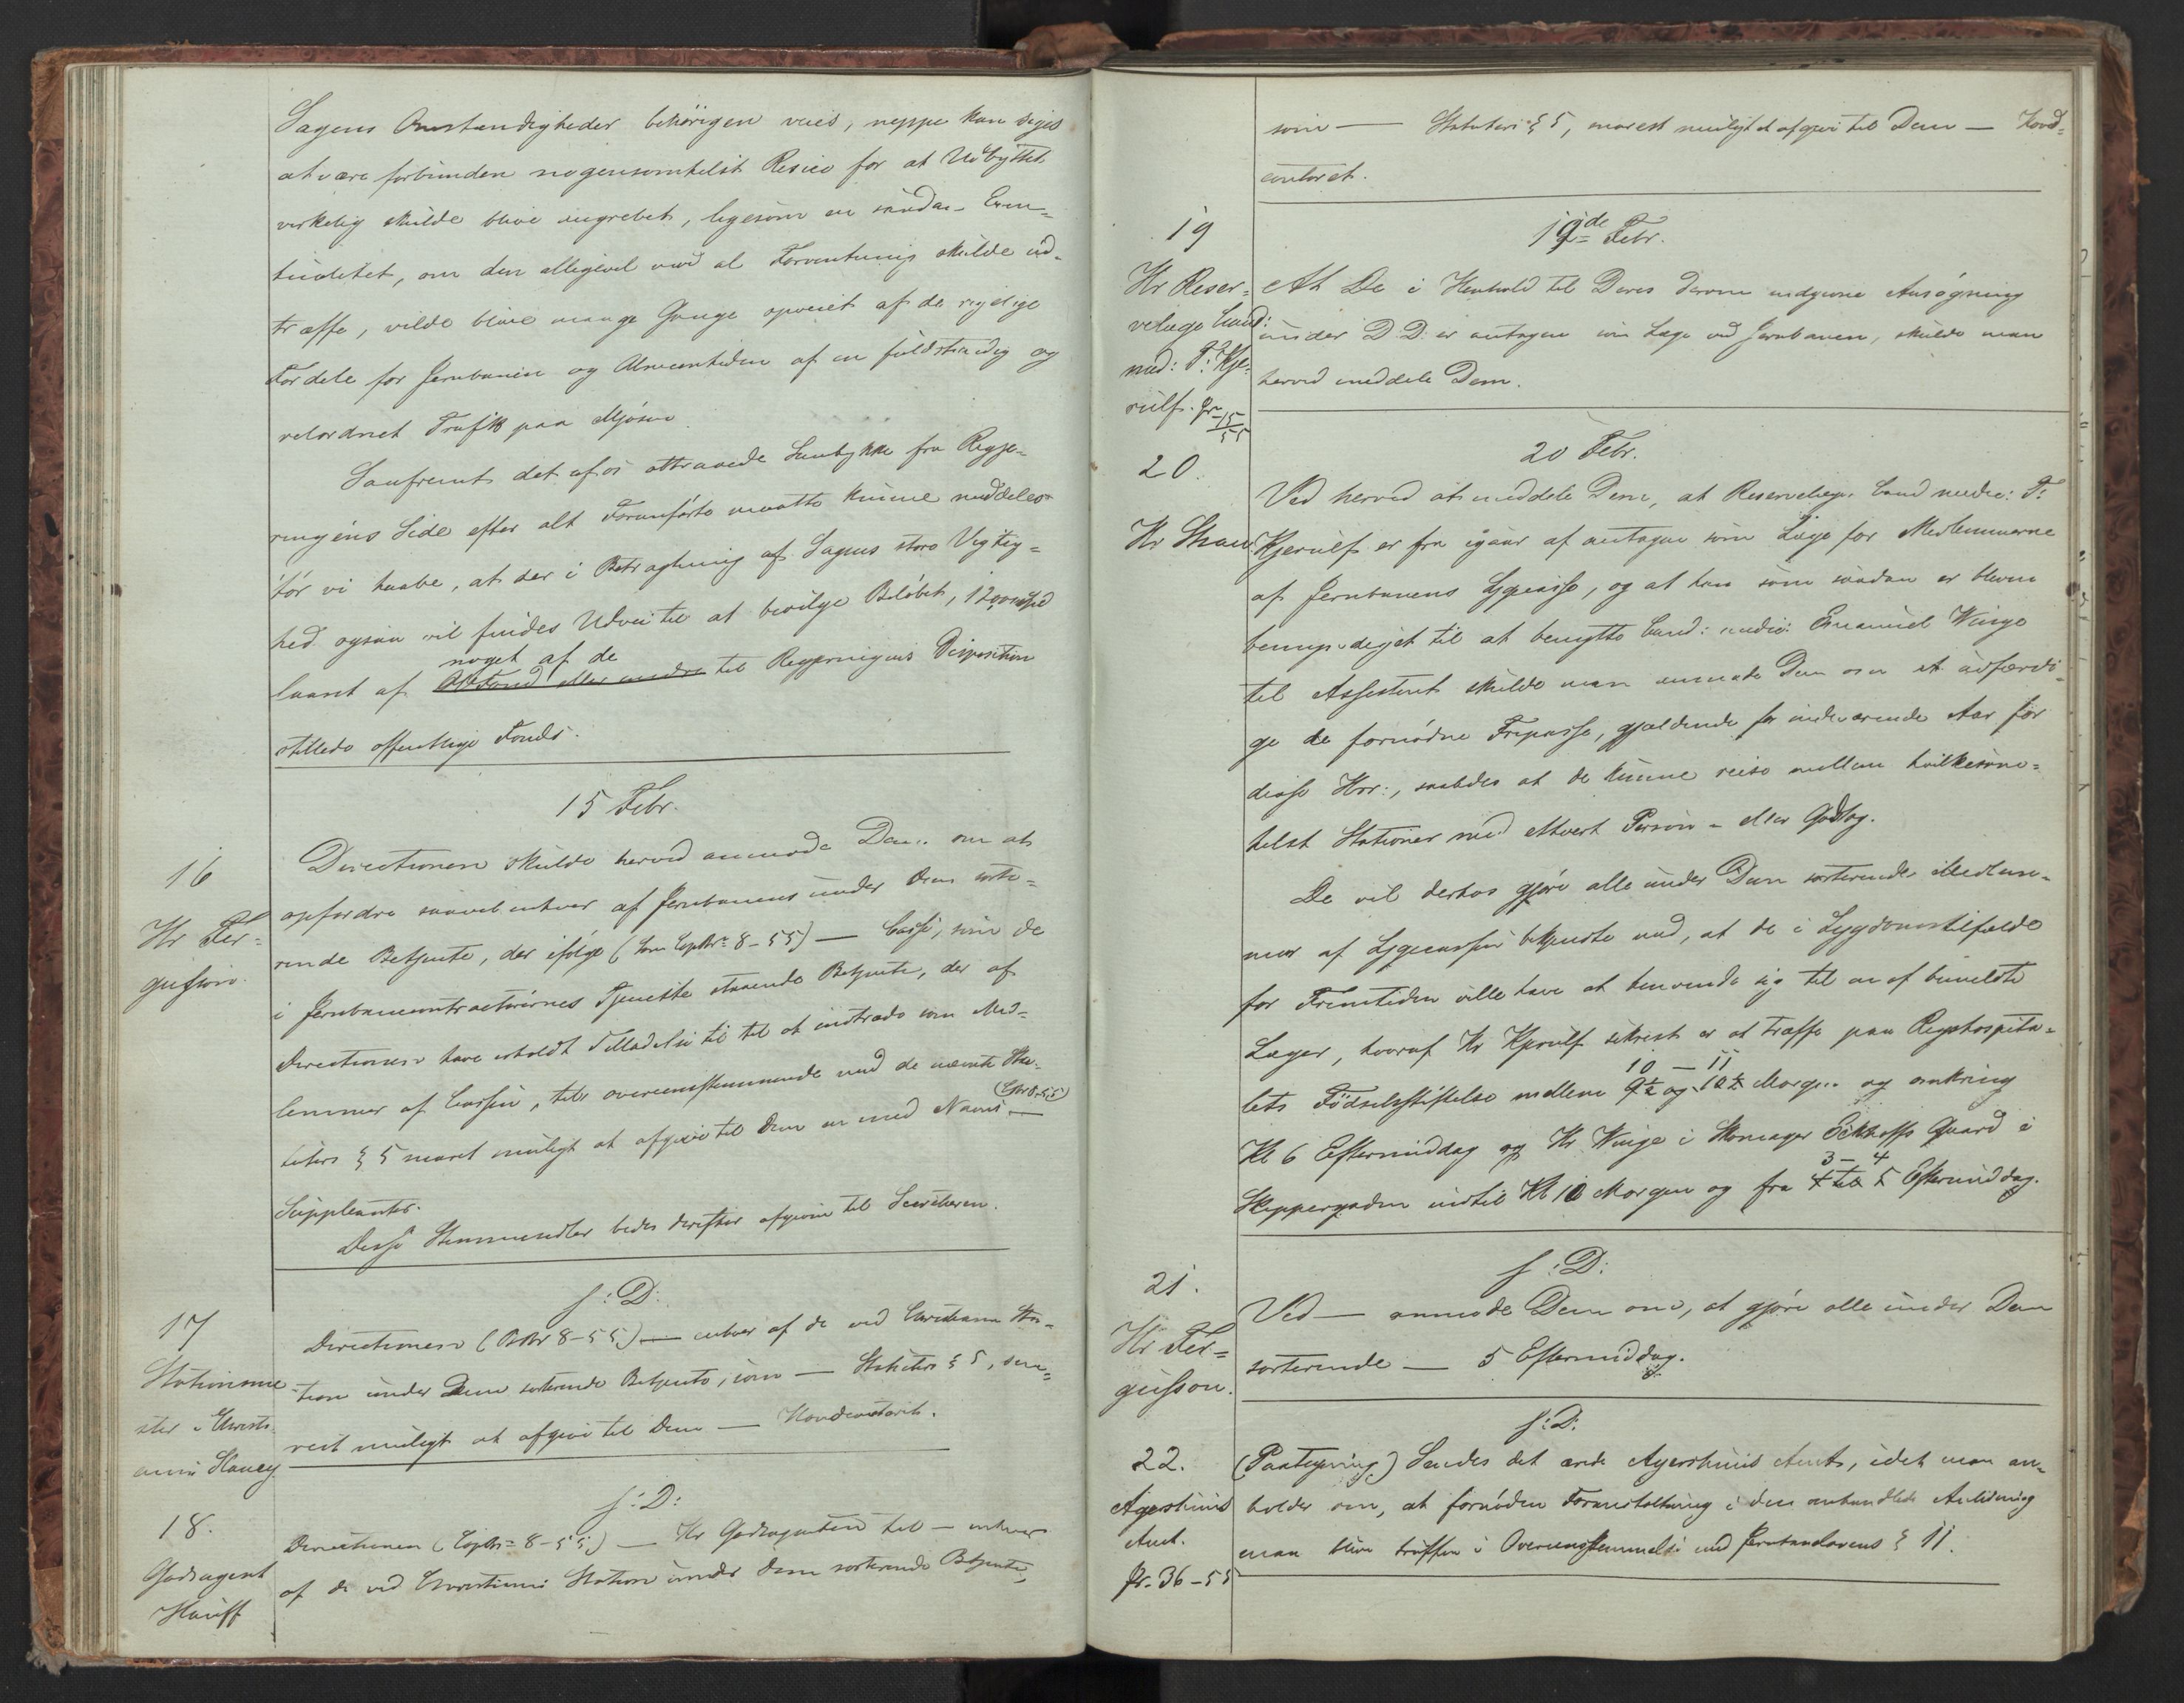 Sagens Omstændigheder behörigen veies, neppe kan siges
at være forbunden nogensomhelst Risico for at Udbyttet
virkelig skulde blive angrebet, ligesom en saadan Even-
tualitet, om den alligevel mod al Forventning skulde ind-
træffe, vilde blive mange Gange opveiet af de rigelige
Fordele for Jernbanen og Almeenheden af en fuldstændig og
velordnet Trafik paa Mjösen
Saafremt det af os attraaede Samtykke fra Regje-
ringens Side efter alt Foranförte maatte kunne meddeles
tör vi haabe, at der i Betragtning af Sagens store Vigtig-
hed ogsaa vil findes Udvei til at bevilge Belöbet, 12,000 Spd
noget af de
laant af eller andre til Regjeringens Disposition
stillede offentlige Fonds.
15 Febr.
16
Hr Fer-
gusson.
Directionen skulde herved anmode Dem om at
opfordre saavel enhver af Jernbanens under Dem sorte-
rende Betjente, der ifölge (som Copibr: 8-55) — Casse, som de
i Jernbanecontracteurernes Tjeneste staaende Betjente, der af
Directionen have erholdt Tilladelse til at indtræde som Med-
lemmer af Cassen, til overeensstemmende med de nævnte Sta-
tuters § 5 snarest muligt at afgive til Dem en med Navns — (Cbr 8-55)
Suppleanter.
Disse Stemmesedler bedes derefter afgivne til Secretæren.
s: D:
17
Stationsme-
ster i Christi-
ania Stanley
Directionen (Cbr 8-55) — enhver af de ved Christiania Sta-
tion under Dem sorterende Betjente, som — Statuters § 5, sna-
rest muligt at afgive til Dem — Hovedcontoret.
s: D:
18.
Godsagent
Hauff
Directionen (Copibr: 8-55) — Hr Godsagenten til — enhver
af de ved Christiania Station under Dem sorterende Betjente,
som — Statuters § 5, snarest muligt at afgive til Dem — Hoved-
contoret.
19de Febr.
19
Hr Reser-
velæge Cand:
med: T: Kje-
rulf. Jr 15/55
At De i Henhold til Deres derom indgivne Ansögning
under D.D. er antagen som Læge ved Jernbanen, skulde man
herved meddele Dem.
20 Febr.
20.
Hr Shaw
Ved herved at meddele Dem, at Reservelæge Cand medic: T:
Kjerulf er fra igaar af antagen som Læge for Medlemmerne
af Jernbanens Sygecasse, og at han som saadan er bleven
bemyndiget til at benytte Cand: medic: Emanuel Winge
til Assistent skulde man anmode Dem om at udfærdi-
ge de fornödne Fripasse, gjældende for indeværende Aar for
disse Hrr:, saaledes at de kunne reise mellem hvilkesom-
helst Stationer med ethvert Person- eller Godstog.
De vil derhos gjöre alle under Dem sorterende Medlem-
mer af Sygecassen bekjendte med, at de i Sygdomstilfælde
for Fremtiden ville have at henvende sig til en af bemeldte
Læger, hvoraf Hr Kjerulf sikrest er at træffe paa Rigshospita-
10 — 11
lets Födselsstiftelse mellem 9½ og 10½ Morgen og omkring
Kl 6 Eftermiddag og Hr Winge i Skomager Eckhoffs Gaard i
3 — 4
Skippergaden indtil Kl 10 Morgen og fra 4 til 5 Eftermiddag.
s: D:
21.
Hr Fer-
gusson.
Ved — anmode Dem om, at gjöre alle under Dem
sorterende — 5 Eftermiddag.
s: D:
22.
Agershuus
Amt.
Jr. 36-55
(Paategning) Sendes det ærede Agershuus Amt, idet man an-
holder om, at fornöden Foranstaltning i den omhandlede Anledning
maa blive truffen i Overeensstemmelse med Jernbanelovens § 11.